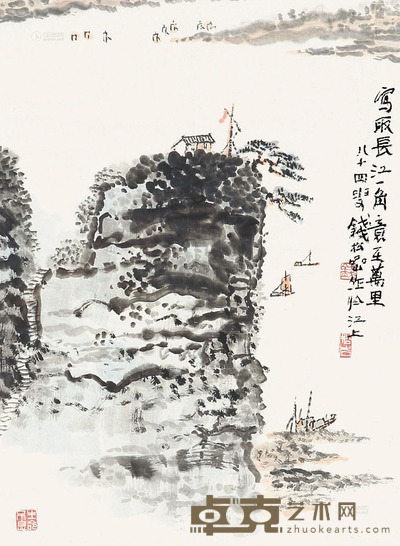 寫取長江一角意在萬里
八十四叟錢松嵒並於江上
卓克艺术网
zhuokearts.com